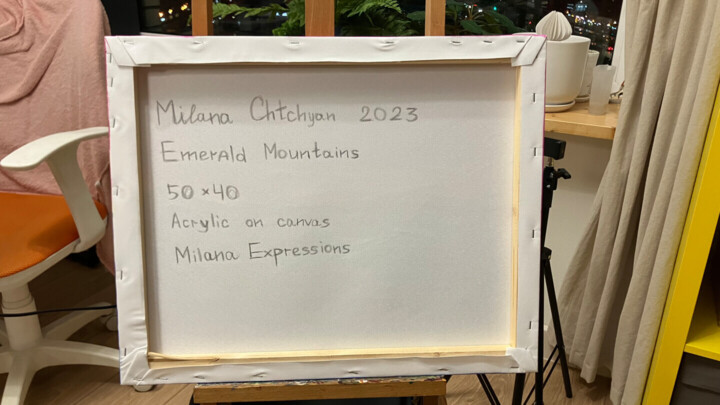 Milana Chtchyan 2023
Emerald Mountains
50×40
Acrylic on canvas
Milana Expressions